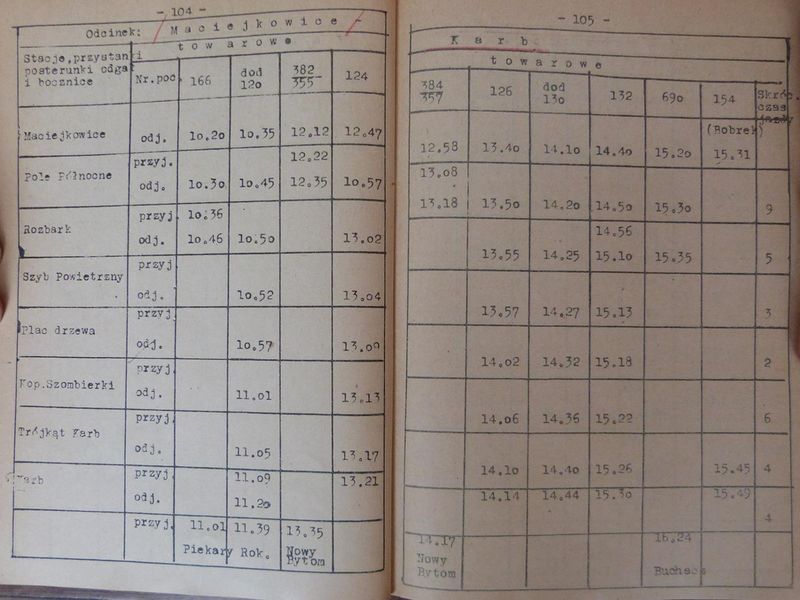 - 104 -
Odcinek: Maciejkowice
towarowe
Stacje,przystanki
posterunki odga
i bocznice Nr.poc. 166 dod 120 382/355 124
Maciejkowice odj. 10.20 10.35 12.12 12.47
przyj. 12.22
Pole Północne odj. 10.30 10.45 12.35 10.57
przyj 10.36
Rozbark odj. 10.46 10.50 13.02
przyj
Szyb Powietrzny odj. 10.52 13.04
przyj
Plac drzewa odj. 10.57 13.09
przyj
Kop.Szombierki odj. 11.01 13.13
przyj.
Trójkąt Karb odj. 11.05 13.17
Karb przyj 11.09 13.21
odj. 11.20
przyj. 11.01 11.39 13.35
Piekary Rok. Nowy Bytom
- 105 -
Karb
towarowe
384/357 126 dod 130 132 690 154 Skróc. czas jazdy
(Bobrek)
12.58 13.40 14.10 14.40 15.20 15.31
13.08
13.18 13.50 14.20 14.50 15.30 9
14.56
13.55 14.25 15.10 15.35 5
13.57 14.27 15.13 3
14.02 14.32 15.18 2
14.06 14.36 15.22 6
14.10 14.40 15.26 15.45 4
14.14 14.44 15.30 15.49
4
14.17 16.24
Nowy
Bytom